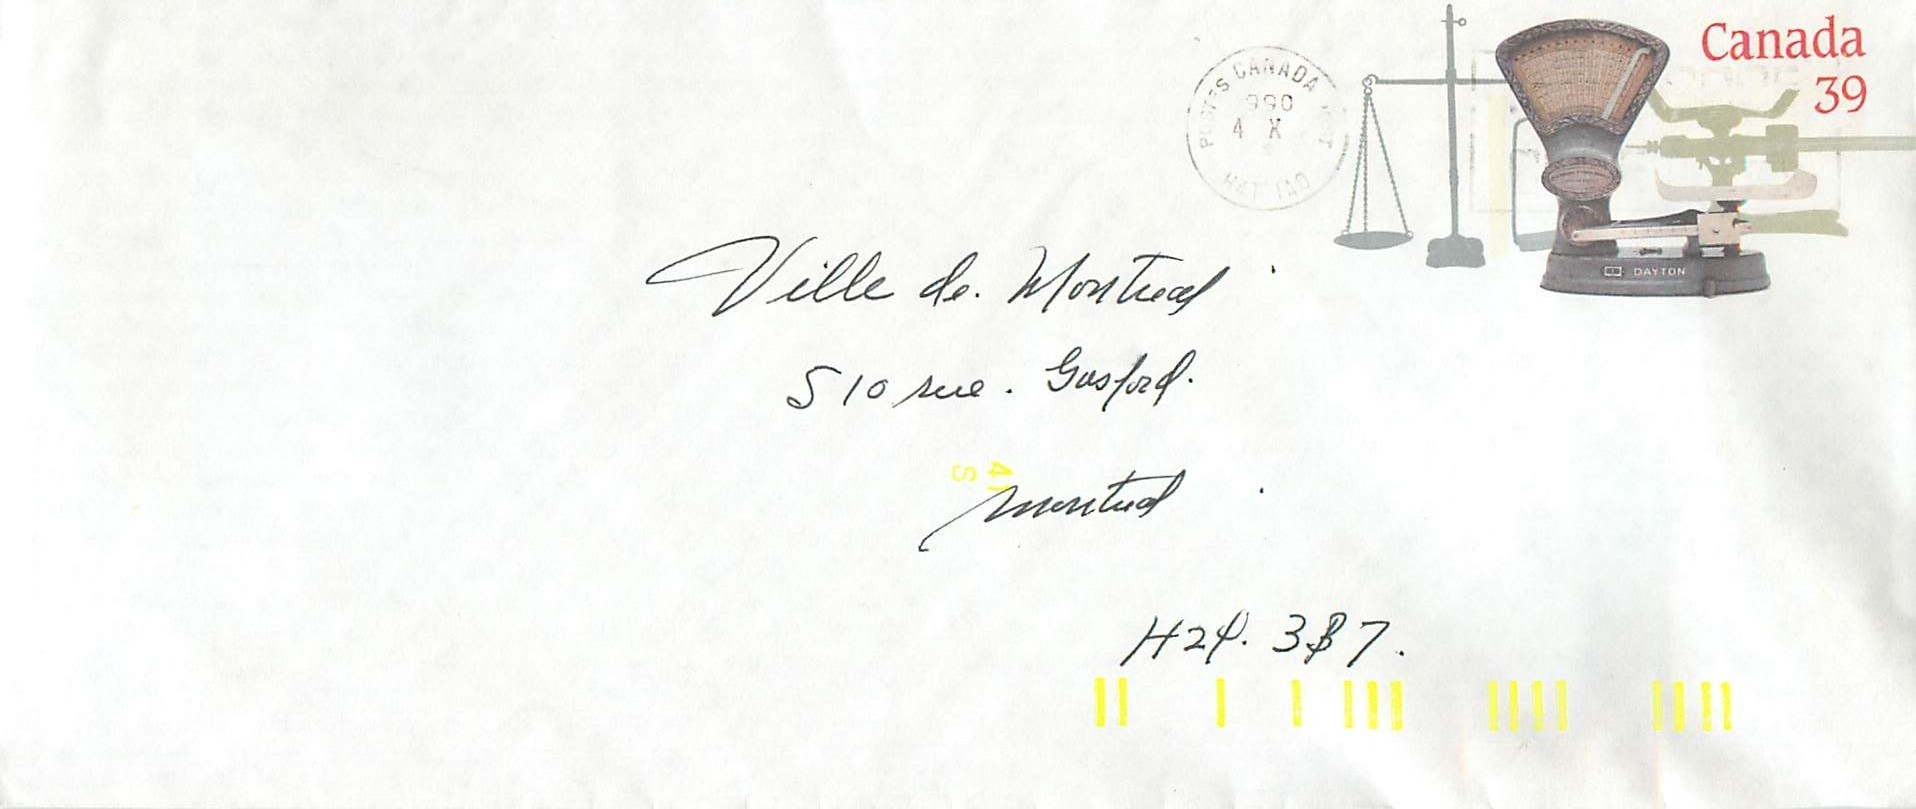 Canada
39
POSTES CANADA POST
990
4 X
H4T 1A0
DAYTON
Ville de. Montreal
510 rue. Gosford.
41
S
Montreal
H2Y. 3B7.